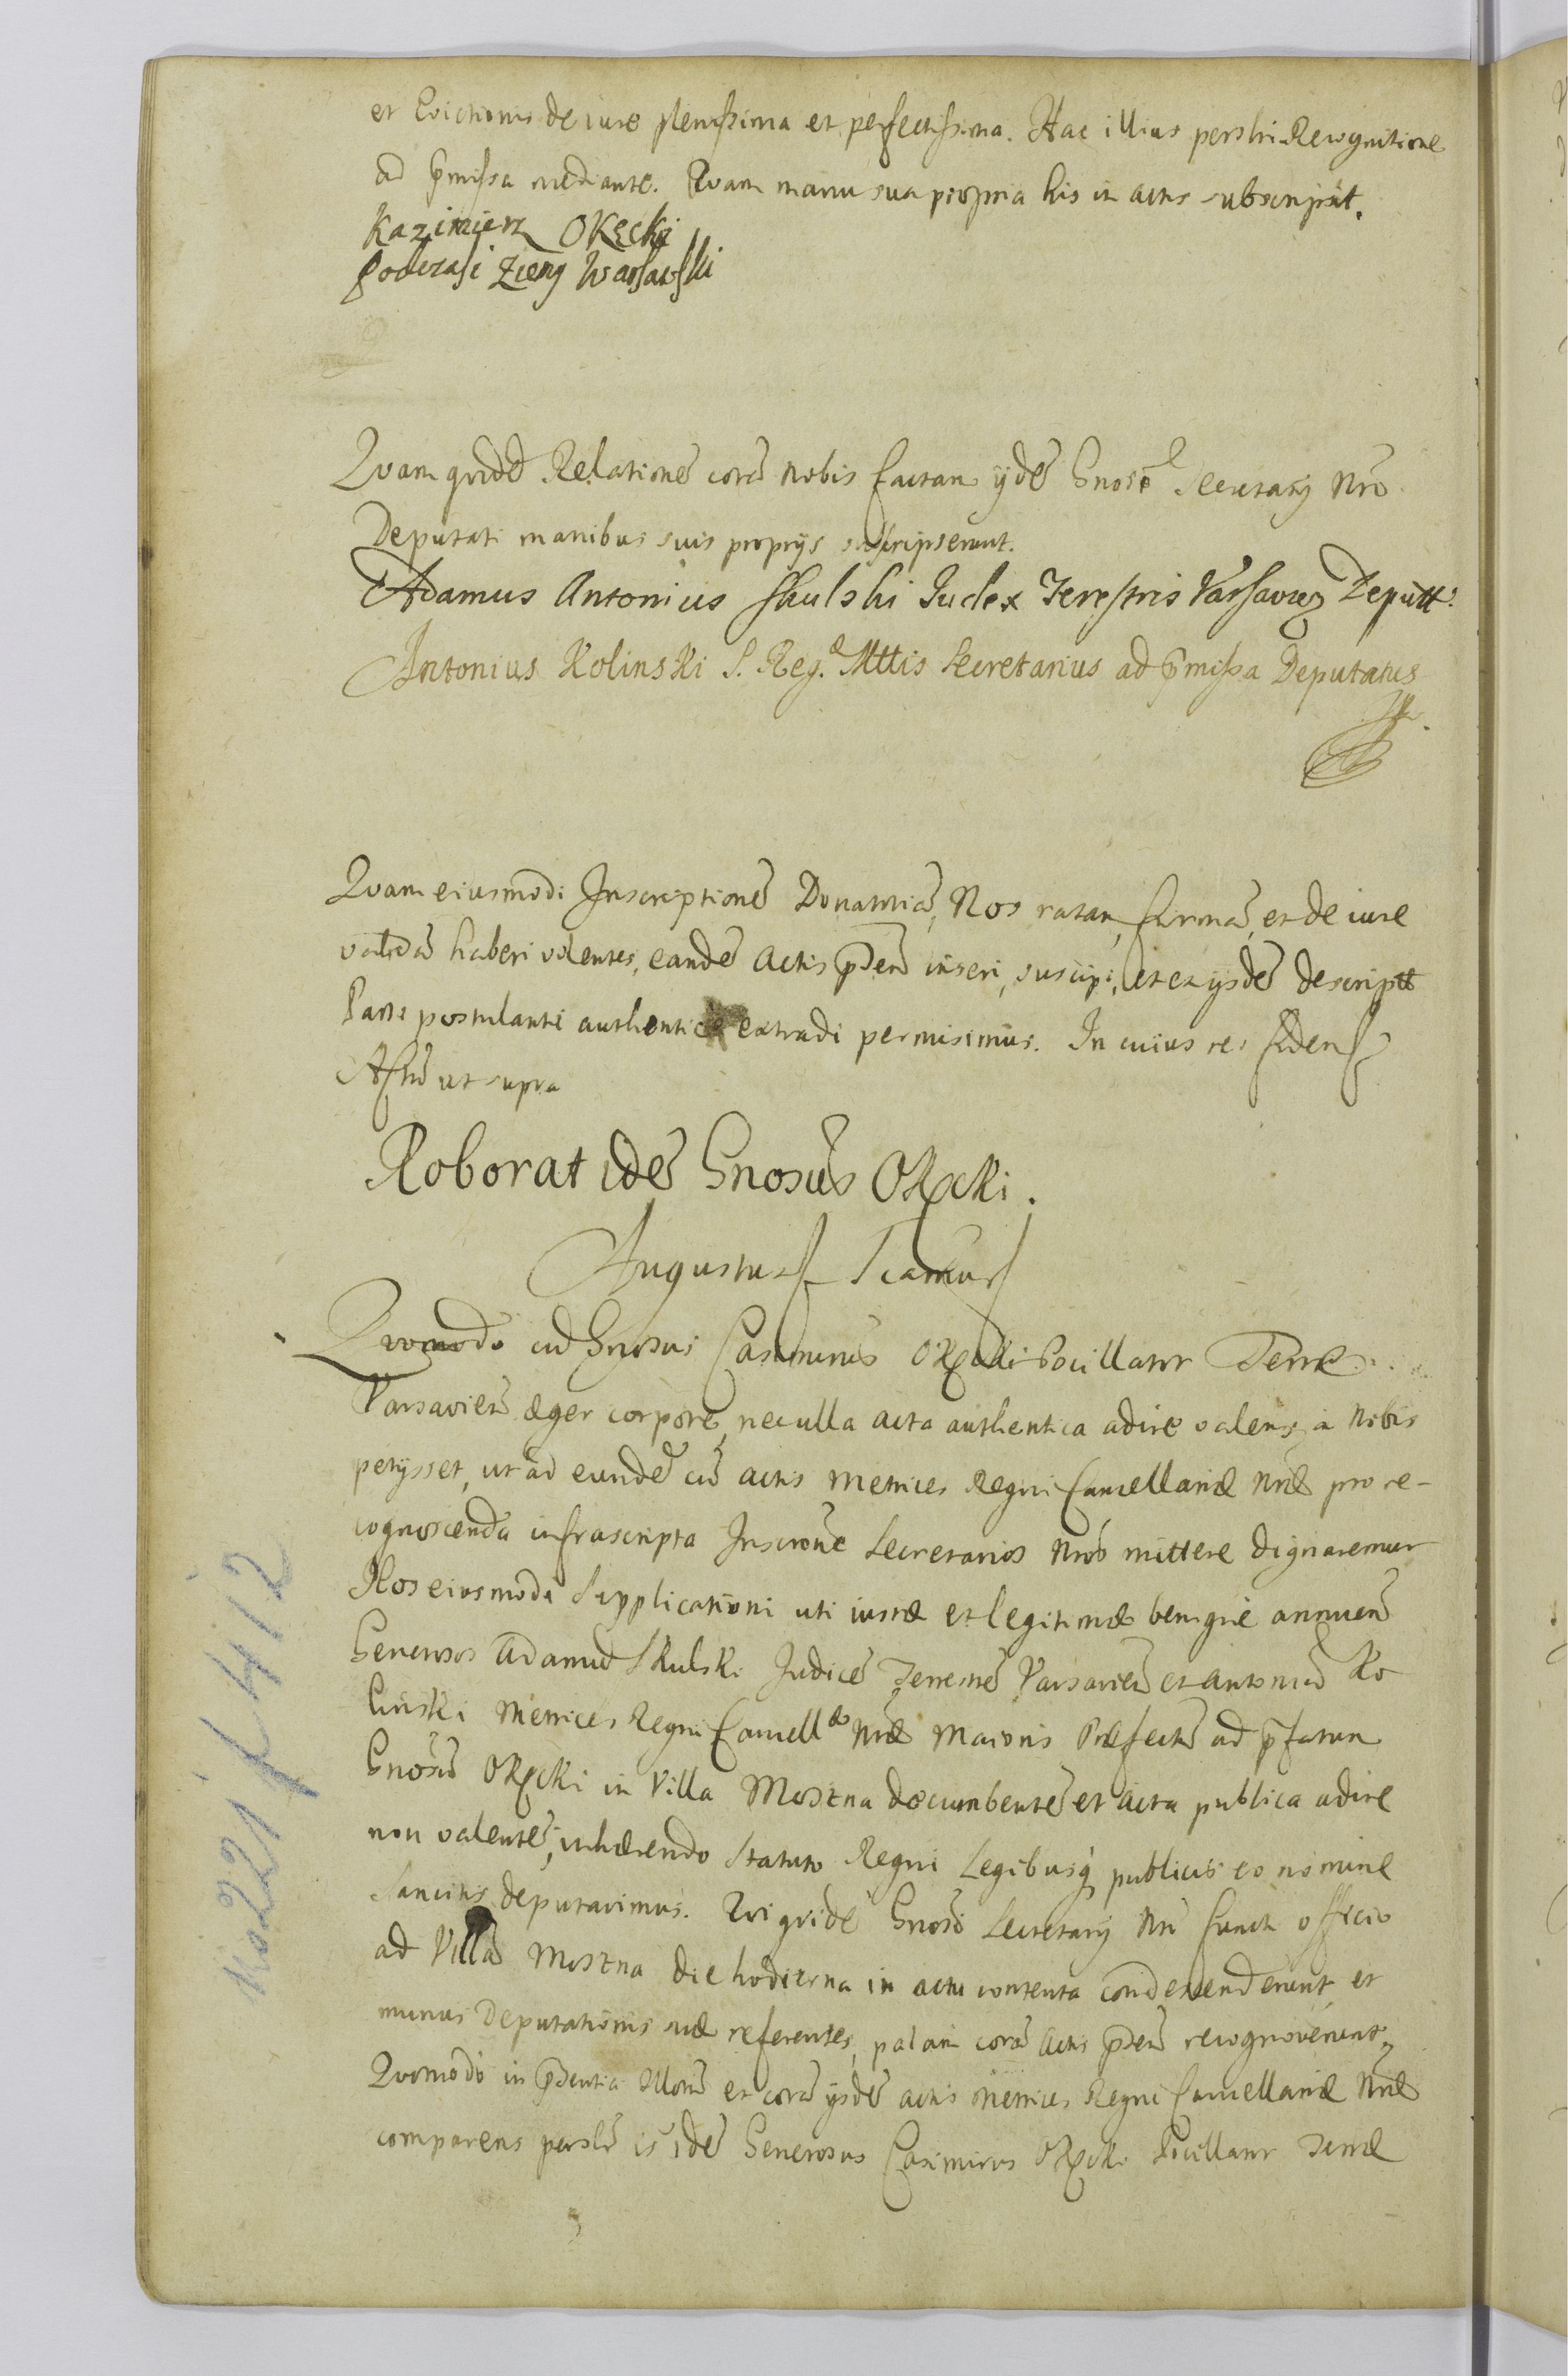 et Evictionis de iure plenissima et perfectissima. Hac illius perslri Recognitione
ad p̃missa mediante. Quam manu sua propria his in actis subscripsit.
Kazimierz Okęcki
Podczasi Ziemy Warsawski
Quam quidẽ Relationẽ corã nobis factam ijdẽ Gnosi Secretarij Nr̃i
Deputati manibus suis proprijs subscripserunt.
Adamus Antonius Skulski Iudex Terestris Varsavien Deputt.
Antonius Kolinski S. Reg. Mttis Secretarius ad p̃missa Deputatus
Quam eiusmodi Inscriptionẽ Donatoriã, Nos ratam, firmã, et de iure
validã haberi volentes, eandẽ Actis p̃ñtibus inseri, suscipi, et ex ijsdẽ descriptt
Parti postulanti authentice extradi permisimus. In cuius rei fidem
Actũ ut supra
Roborat idẽ Gnosus Okęcki.
Augustus Secundus
Quomodo cũ Gnosus Casimirus Okęcki Pocillator Terræ
Varsavien æger corpore, nec ulla acta authentica adire valens, a Nobis
petijsset, ut ad eundẽ cũ actis Metrices Regni Cancellariæ Nræ pro re-
cognoscenda infrascripta Inscrõne Secretarios Nros mittere dignaremur
Nos eiusmodi Supplicationi uti iustæ et legitimæ benigne annuen
Generosos Adamũ Skulski Judicẽ Terrestrẽ Varsavien et Antoniũ Ko
linski Metrices Regni Cancell Nræ Maioris Præfectũ ad p̃fatum
Gnosũ Okęcki in Villa Moszna decumbentẽ et acta publica adire
non valentẽ, inhærendo Statuto Regni Legibusq publicis eo nomine
Sancitis deputavimus. Qui quidẽ Gnosi Secretarij Nri functi officio
ad Villã Moszna die hodierna in actu contenta condescenderunt, et
munus Deputationis suæ referentes, palam corã Actis p̃ñtibus recognoverunt,
Quomodo in p̃sentia Illorũ et corã ijsdẽ actis Metrices Regni Cancellariæ Nræ
comparens perslr̃ is idẽ Generosus Casimirus Okęcki Pocillator Terræ
Ks 221 f 412